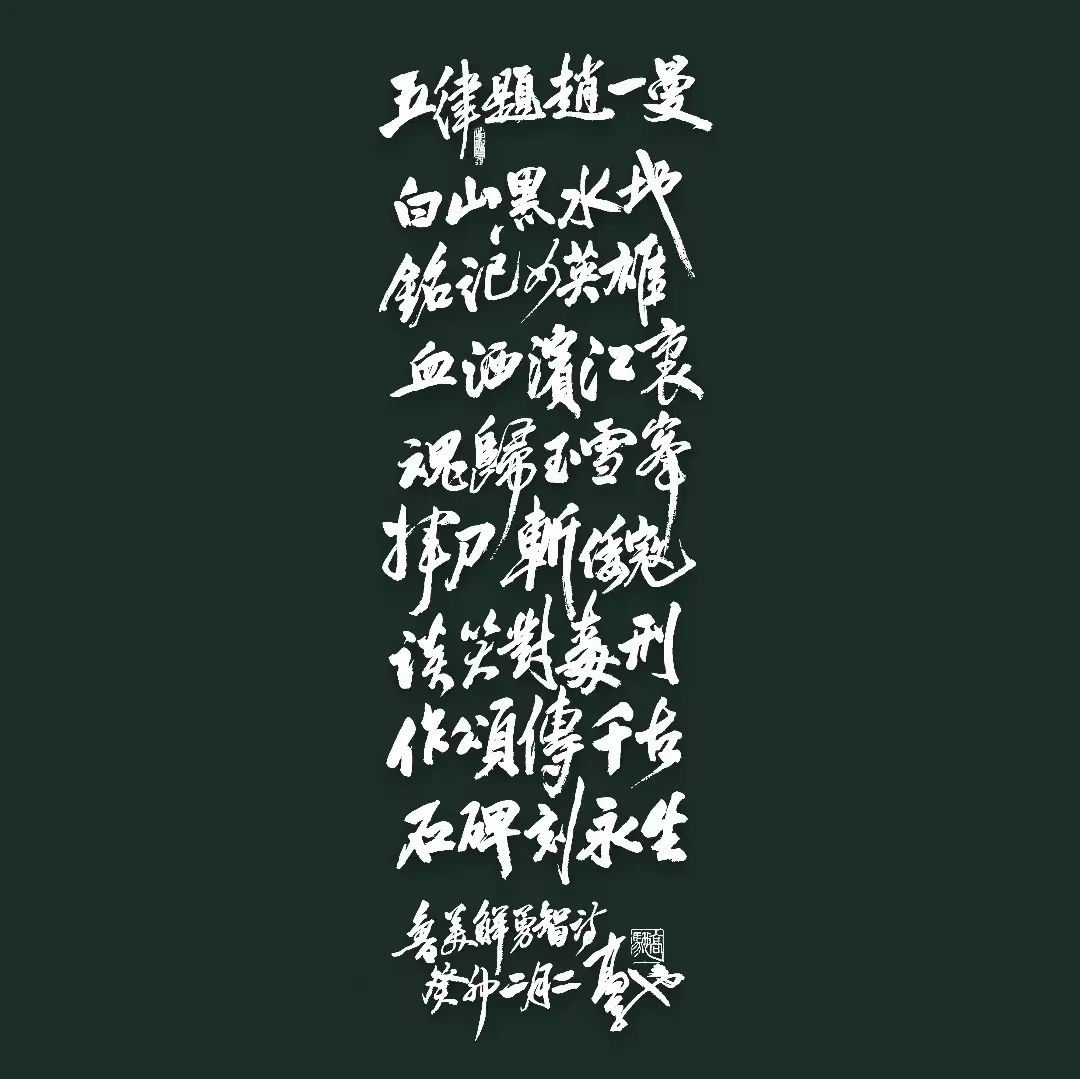 五律題趙一曼
白山黑水地
銘記女英雄
血洒濱江衷
魂歸玉雪峯
揮刀斬倭寇
談笑對毒刑
作頌傳千古
石碑刻永生
魯美鮮勇智詩
癸卯二月二